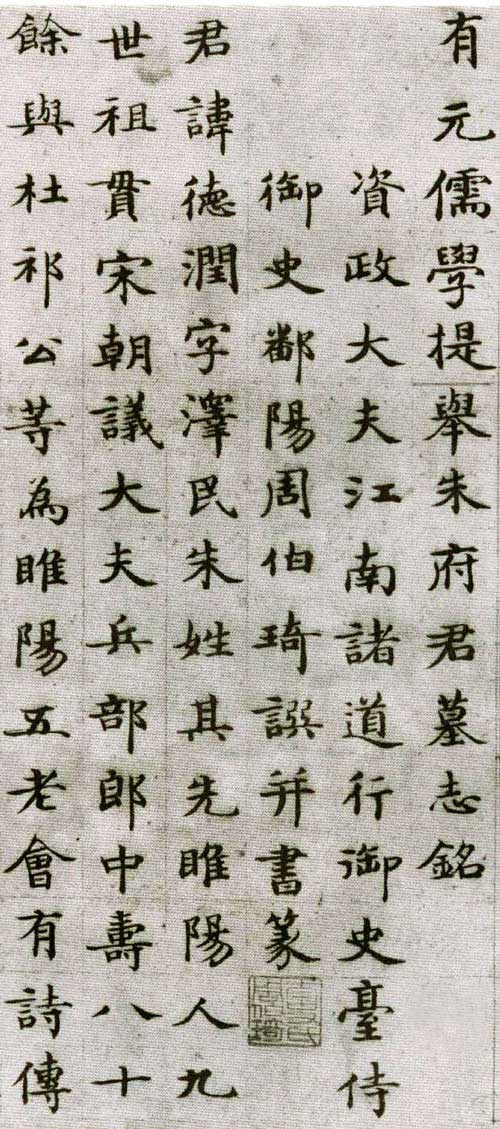 有元儒學提舉朱府君墓志銘
資政大夫江南諸道行御史臺侍
御史鄱陽周伯琦譔并書篆
君諱德潤字澤民朱姓其先睢陽人九
世祖貫宋朝議大夫兵部郎中壽八十
餘與杜祁公等為睢陽五老會有詩傳